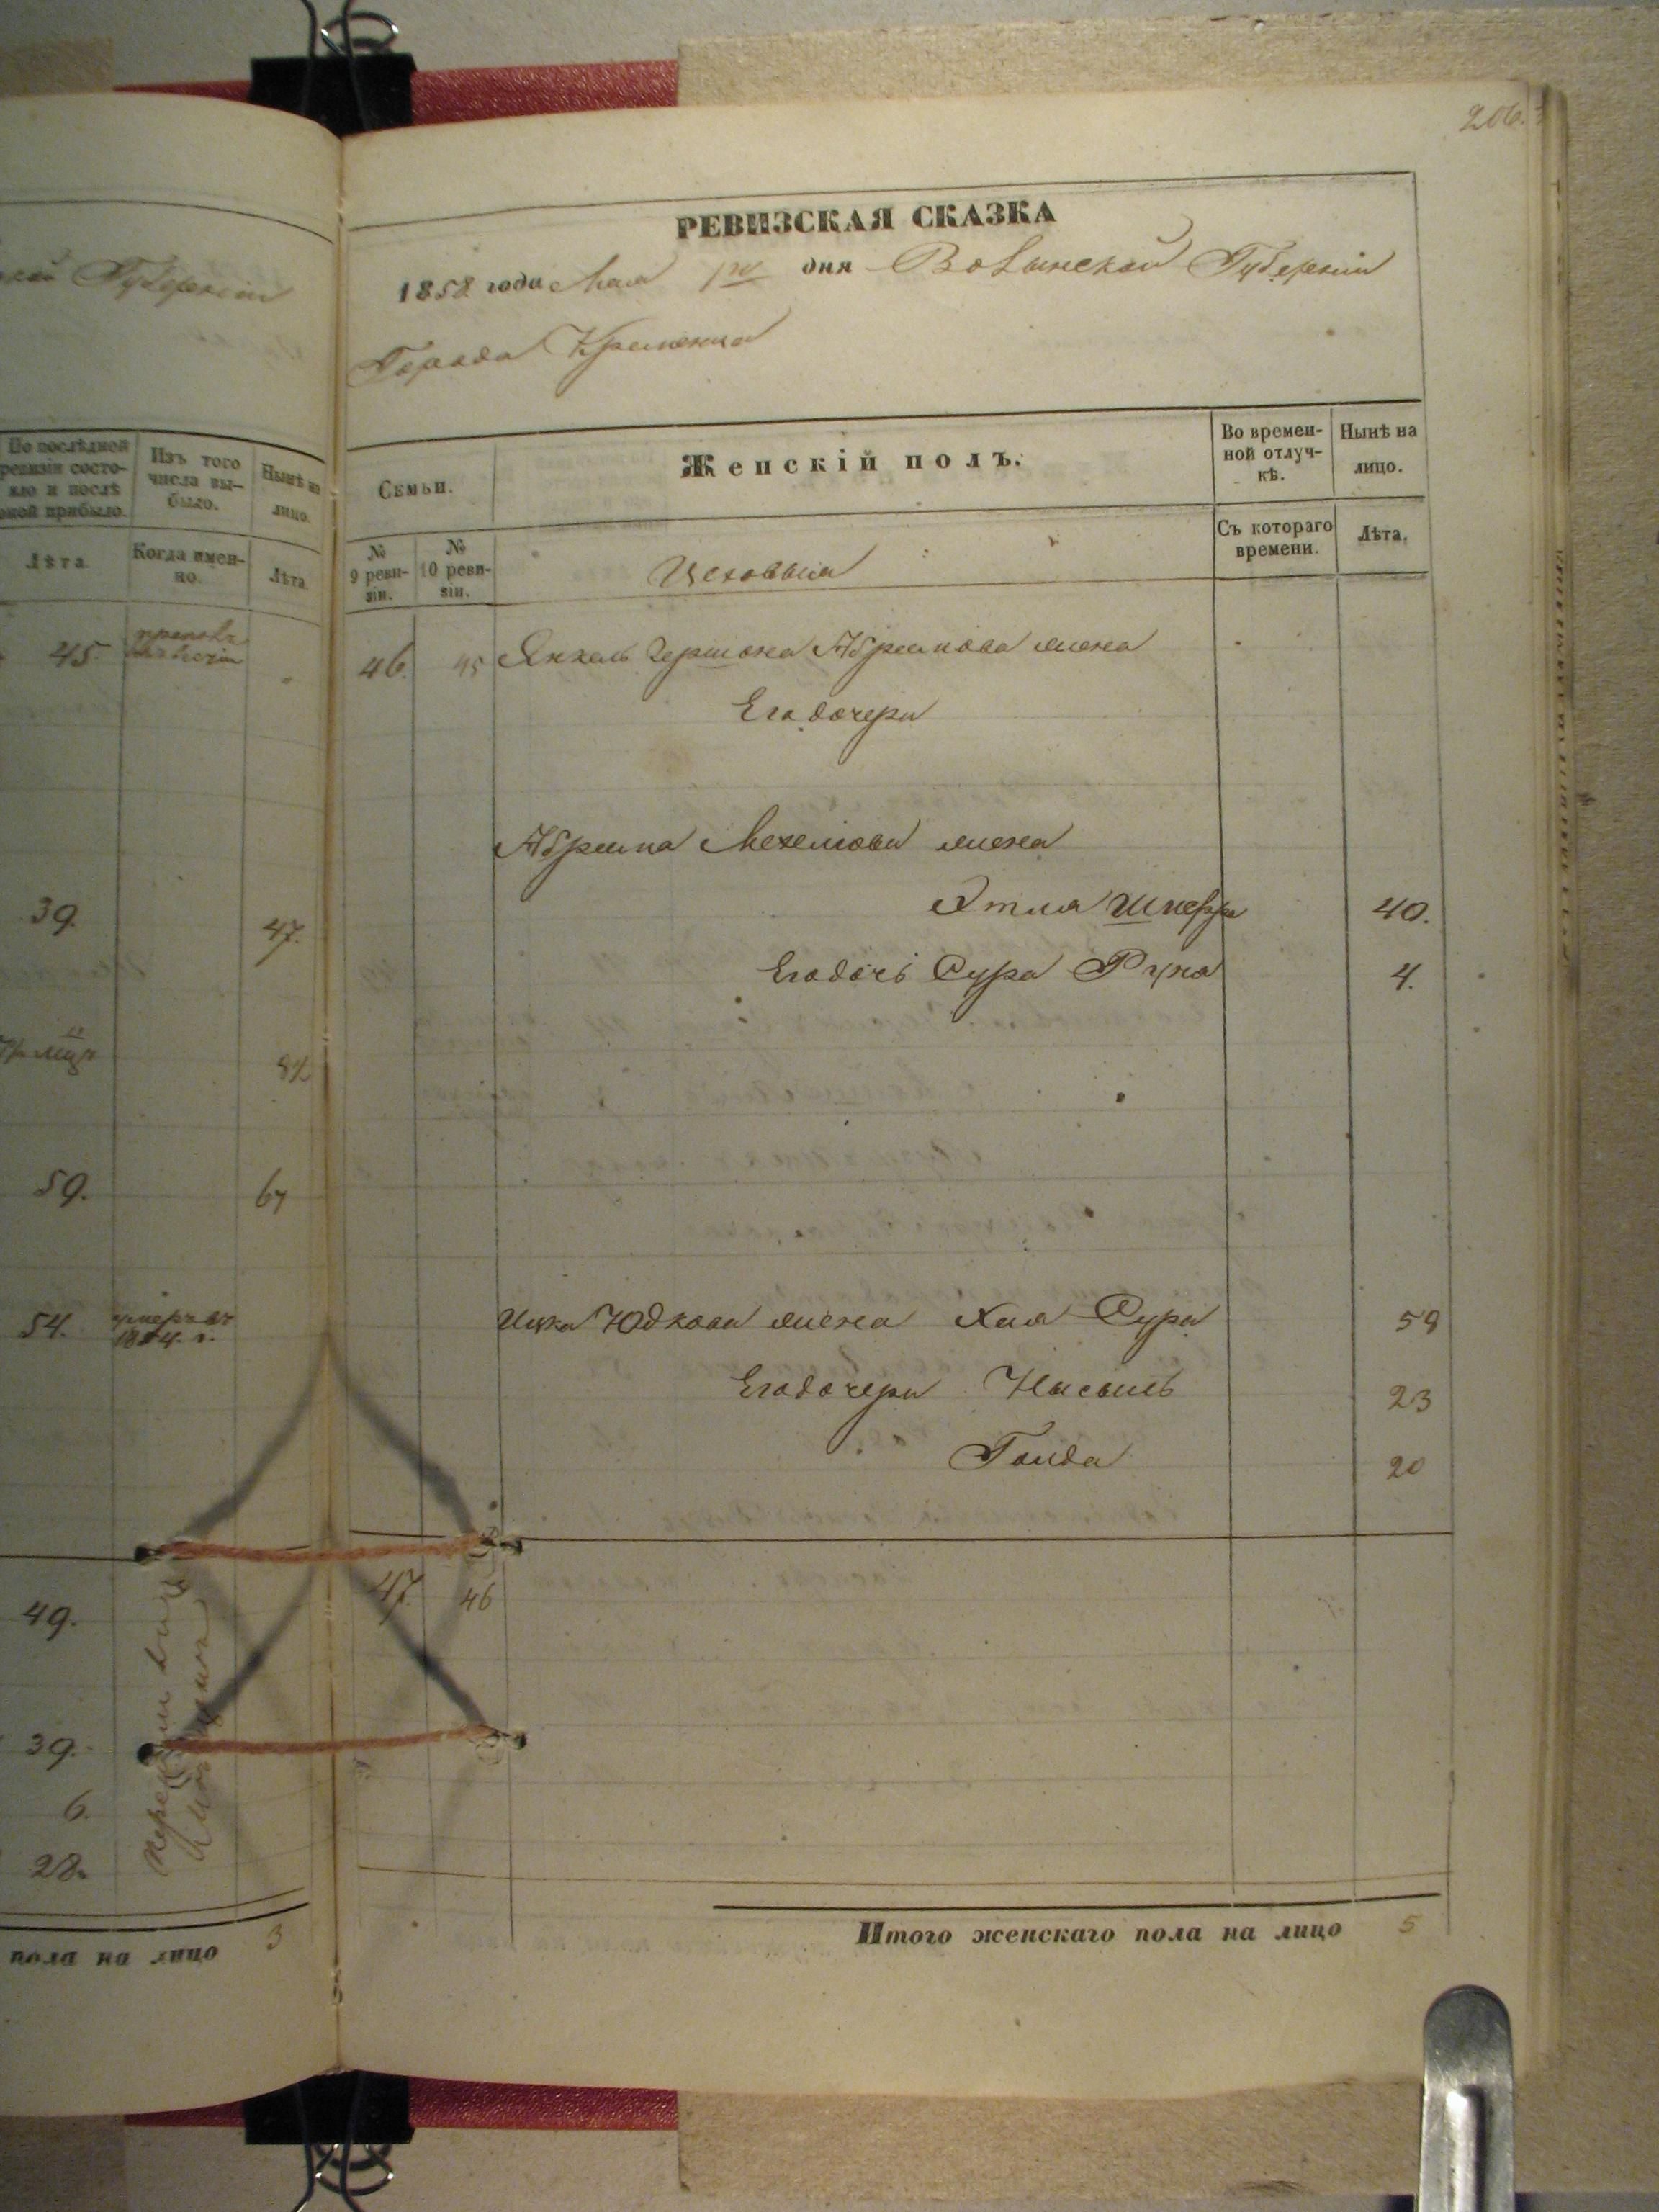 206.
РЕВИЗСКАЯ СКАЗКА
1858 года Мая дня Волынской Губерніи
Города Кременца
Губерніи
По послѣдней ревизіи состояло и послѣ оной прибыло.
Изъ того числа выбыло.
Нынѣ на лицо.
Лѣта
Когда именно.
Лѣта.
45.
39.
47.
59.
67
54.
умеръ въ 1854. г.
49.
39.
6.
28.
пола на лицо 3
Семьи.
Женскій полъ.
Во временной отлучкѣ.
Нынѣ на лицо.
№ 9 ревизіи.
№ 10 ревизіи.
Цеховыя
Съ котораго времени.
Лѣта.
46. 45 Янкель Гершона Абрамова жена
Его дочери
Абрама Мехелова жена
Этля 40.
Его дочь Сура Руха 4.
Ицка Юдкова жена Хая Сура 59
Его дочери Нысыль 23
Голда 20
47. 46
Итого женскаго пола на лицо 5